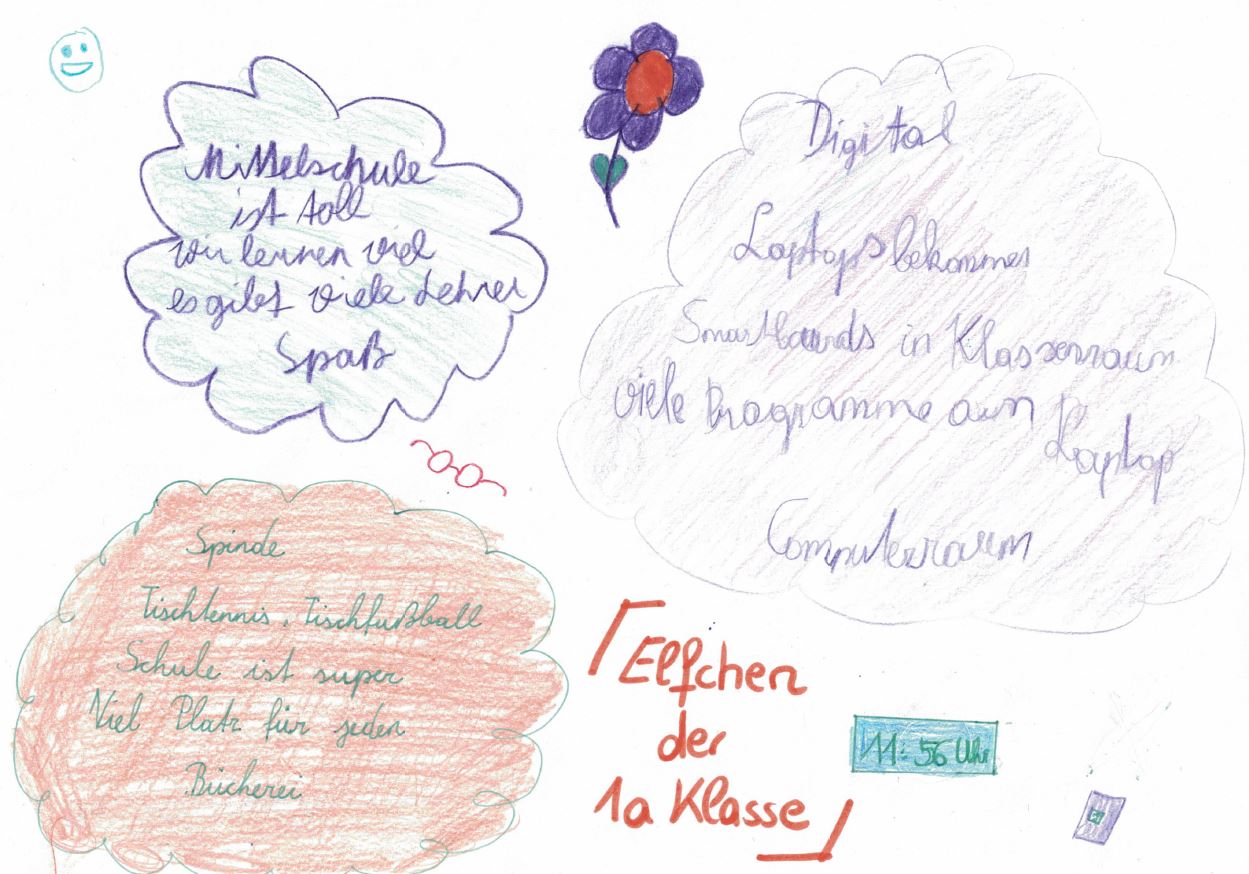 Mittelschule
ist toll
wir lernen viel
es gibt viele Lehrer
Spaß
Digital
Laptops bekommen
Smartboards in Klassenraum
viele Programme am
Laptop
Computerraum
Spinde
Tischtennis, Tischfußball
Schule ist super
Viel Platz für jeden
Bücherei
Elfchen
der
1a Klasse
11:56 Uhr